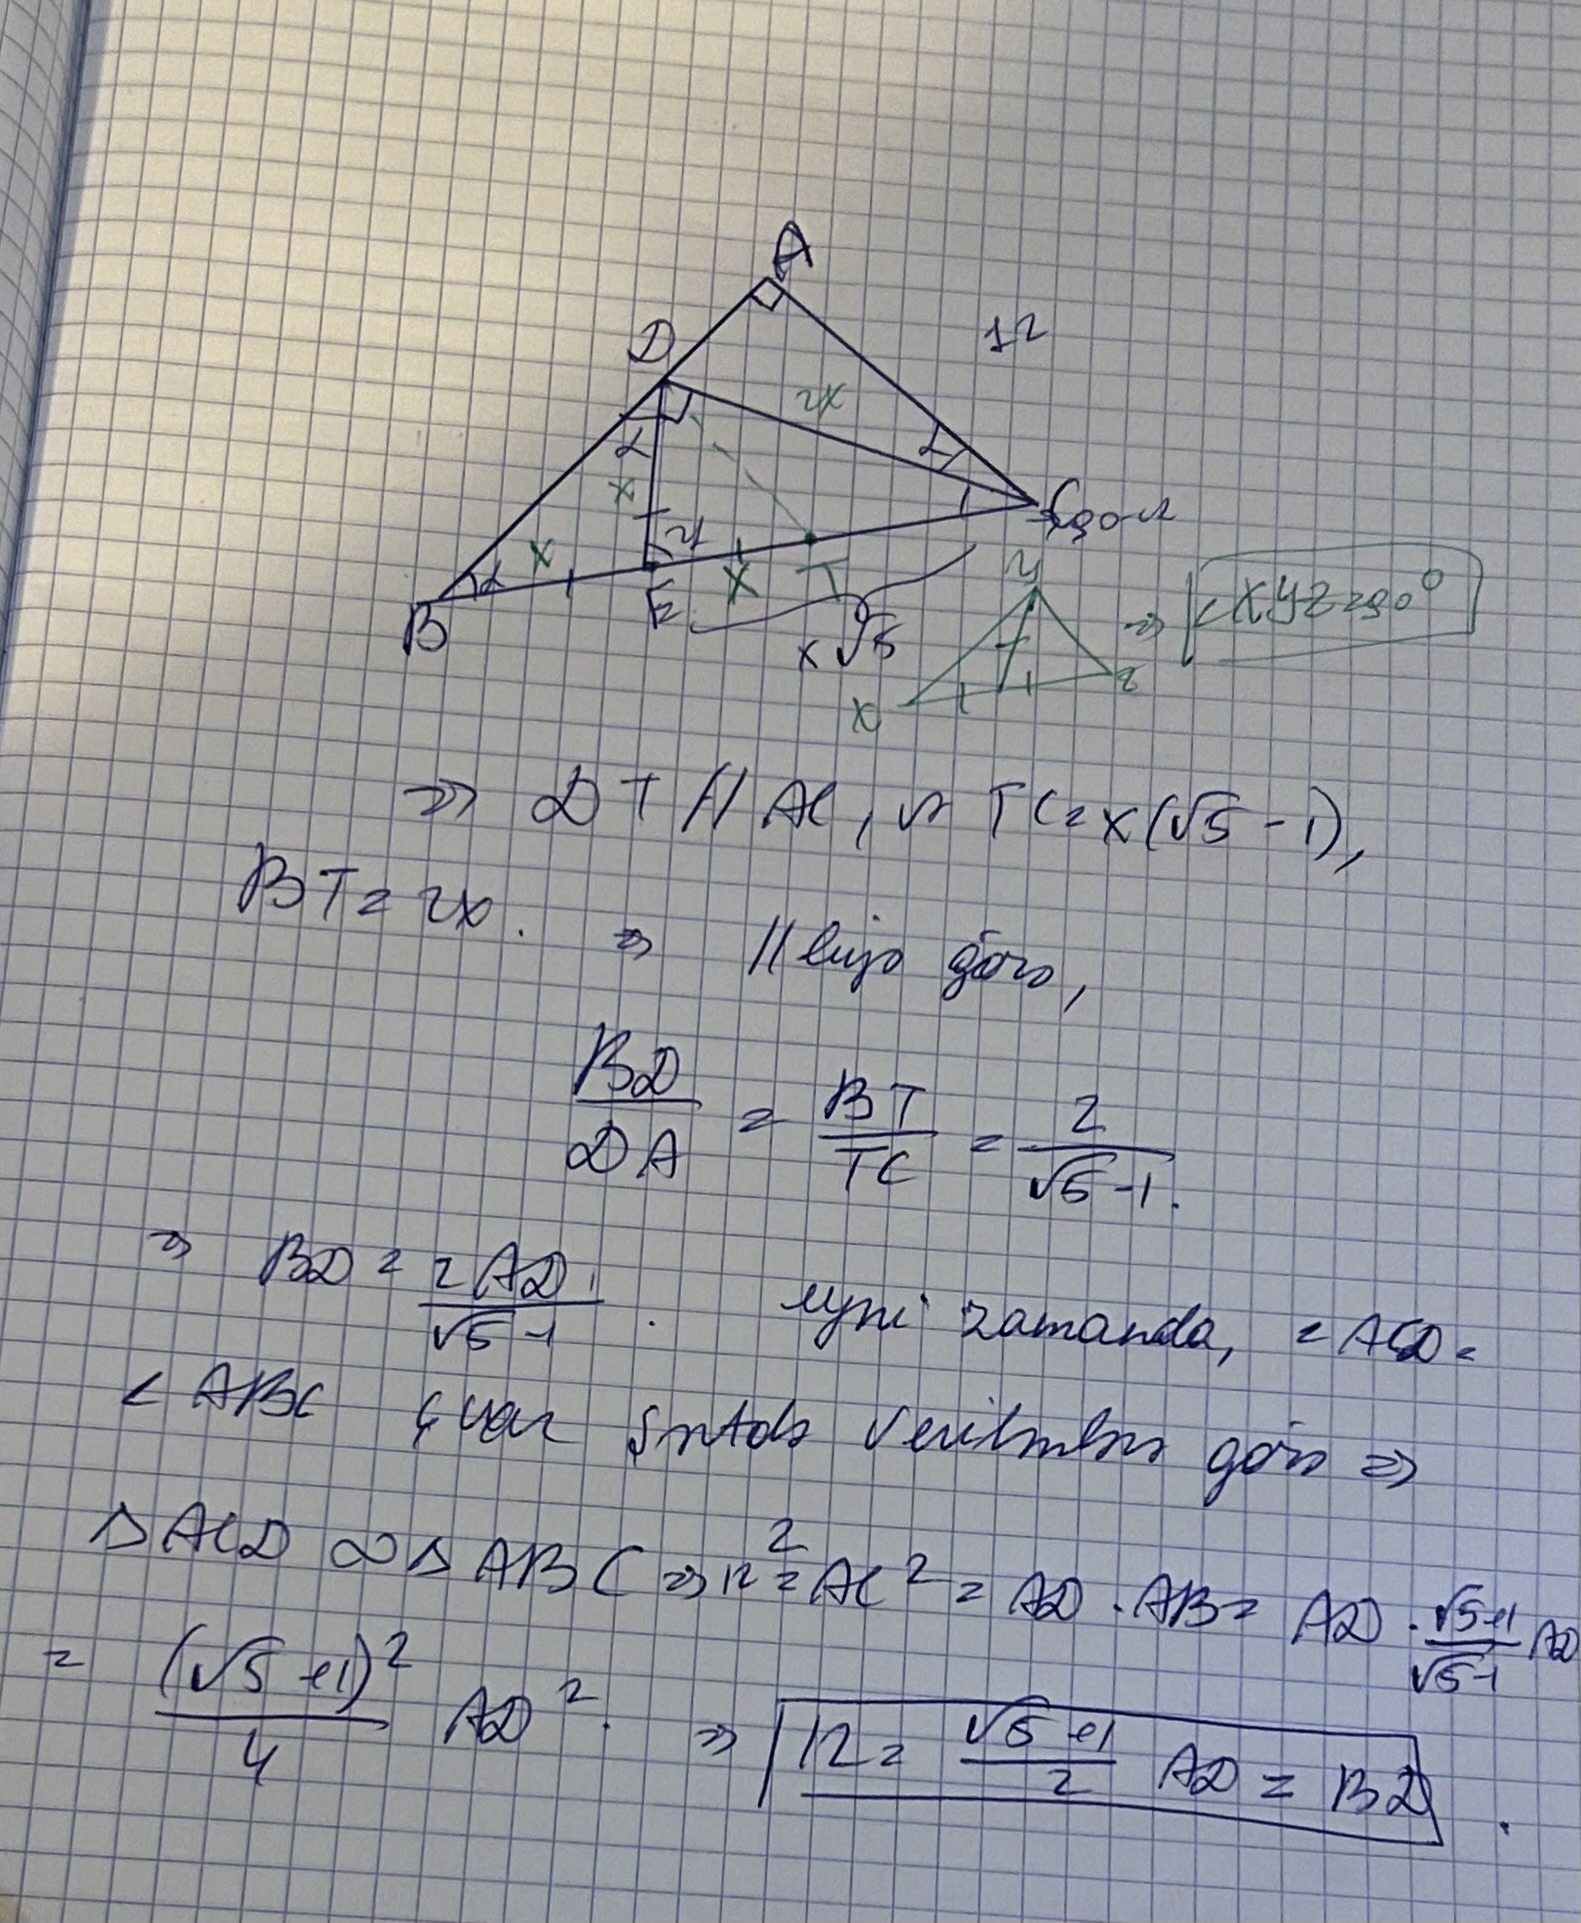 A
12
D
2x
α
α
x
2α
C
90-α
x
α
B
E
x
T
x√5
Y
X
Z
⇒ <XYZ=90°
⇒ DT // AC, və TC=x(√5-1),
BT=2x. ⇒ //liyə görə,
BD/DA = BT/TC = 2/(√5-1).
⇒ BD = 2AD/(√5-1). eyni zamanda, <ACD=
<ABC şərtdə verilmələrə görə ⇒
△ACD ∞ △ABC ⇒ 12²=AC²=AD·AB=AD·(√5+1)/(√5-1) AD
= (√5+1)²/4 AD². ⇒ 12=(√5+1)/2 AD=BD.